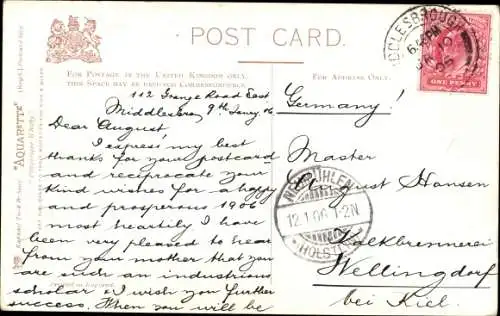 POST CARD.
FOR POSTAGE IN THE UNITED KINGDOM ONLY,
THIS SPACE MAY BE UTILISED FOR CORRESPONDENCE.
FOR ADDRESS ONLY.
112 Grange Road East
Middlesbro' 9th Jany. 06
Dear August!
I express my best
thanks for your postcard
and reciprocate your
kind wishes for a happy
and prosperous 1906
most heartily I have
been very pleased to hear
from your mother that you
are such an industrious
scholar & I wish you further
success. When you will be
Germany!
Master
August Hansen
Kalkbrennerei
Wellingdorf
bei Kiel.
ONE PENNY
NEUMÜHLEN
12.1.06 1-2N
HOLST
"AQUARETTE"